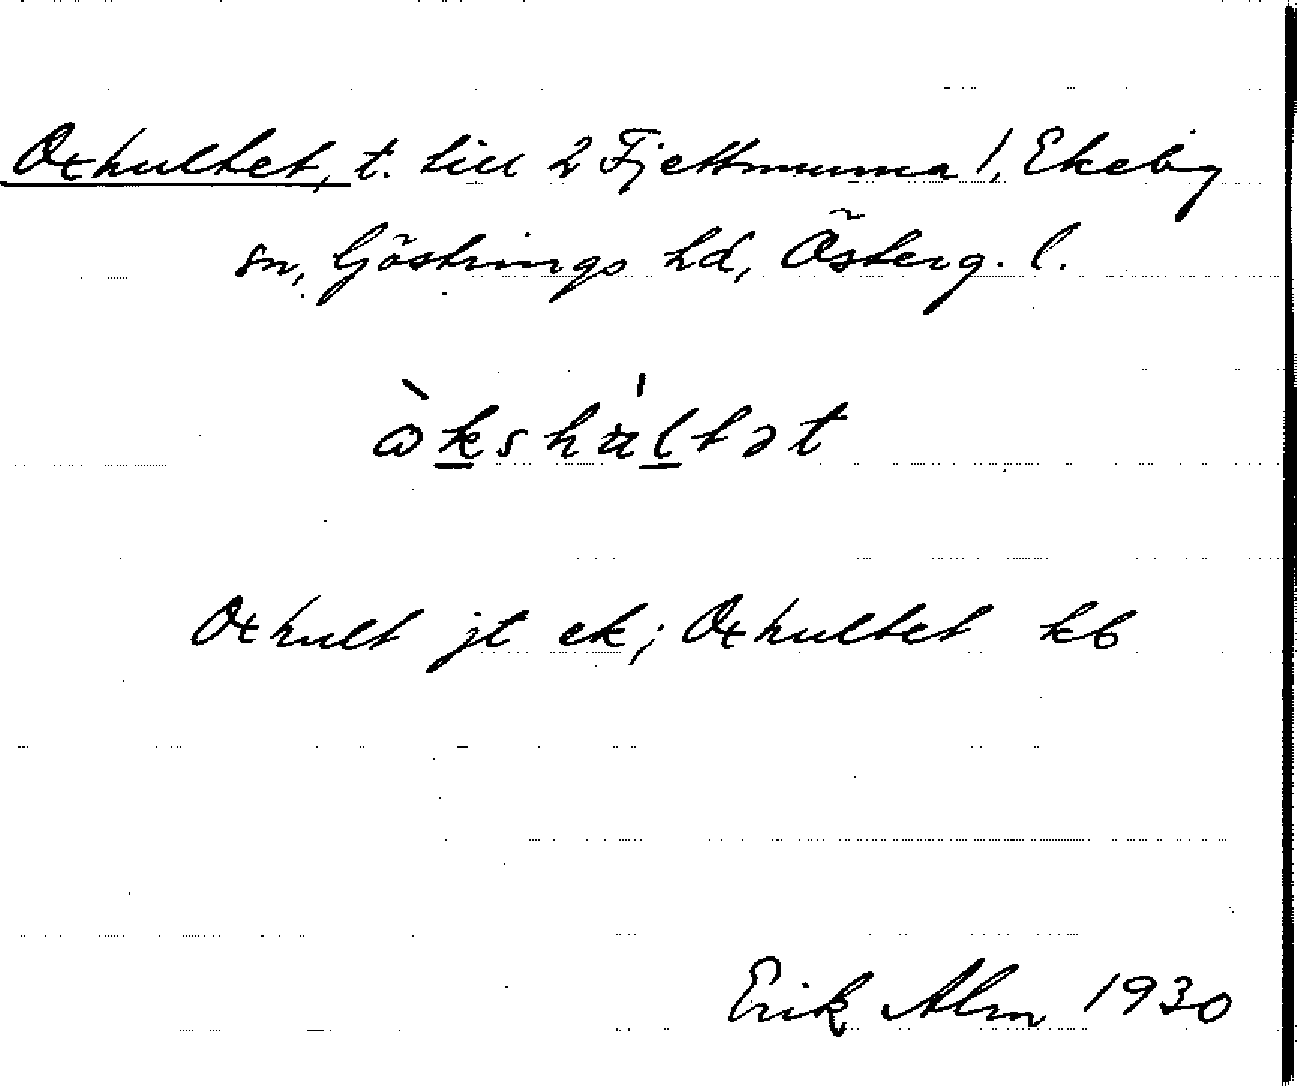 Oxhultet, t. till 2 Fjettmunna 1, Ekeby
sn, Göstrings hd, Österg. l.
Oxhult jt ek; Oxhultet kb
Erik Alm 1930